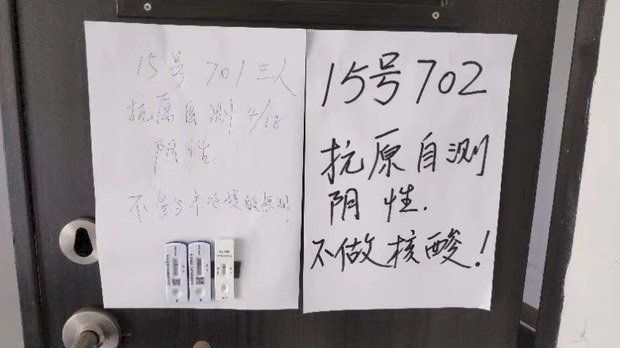 15号 701 三人
抗原自测 4/18
阴性
不参与
15号702
抗原自测
阴性.
不做核酸!